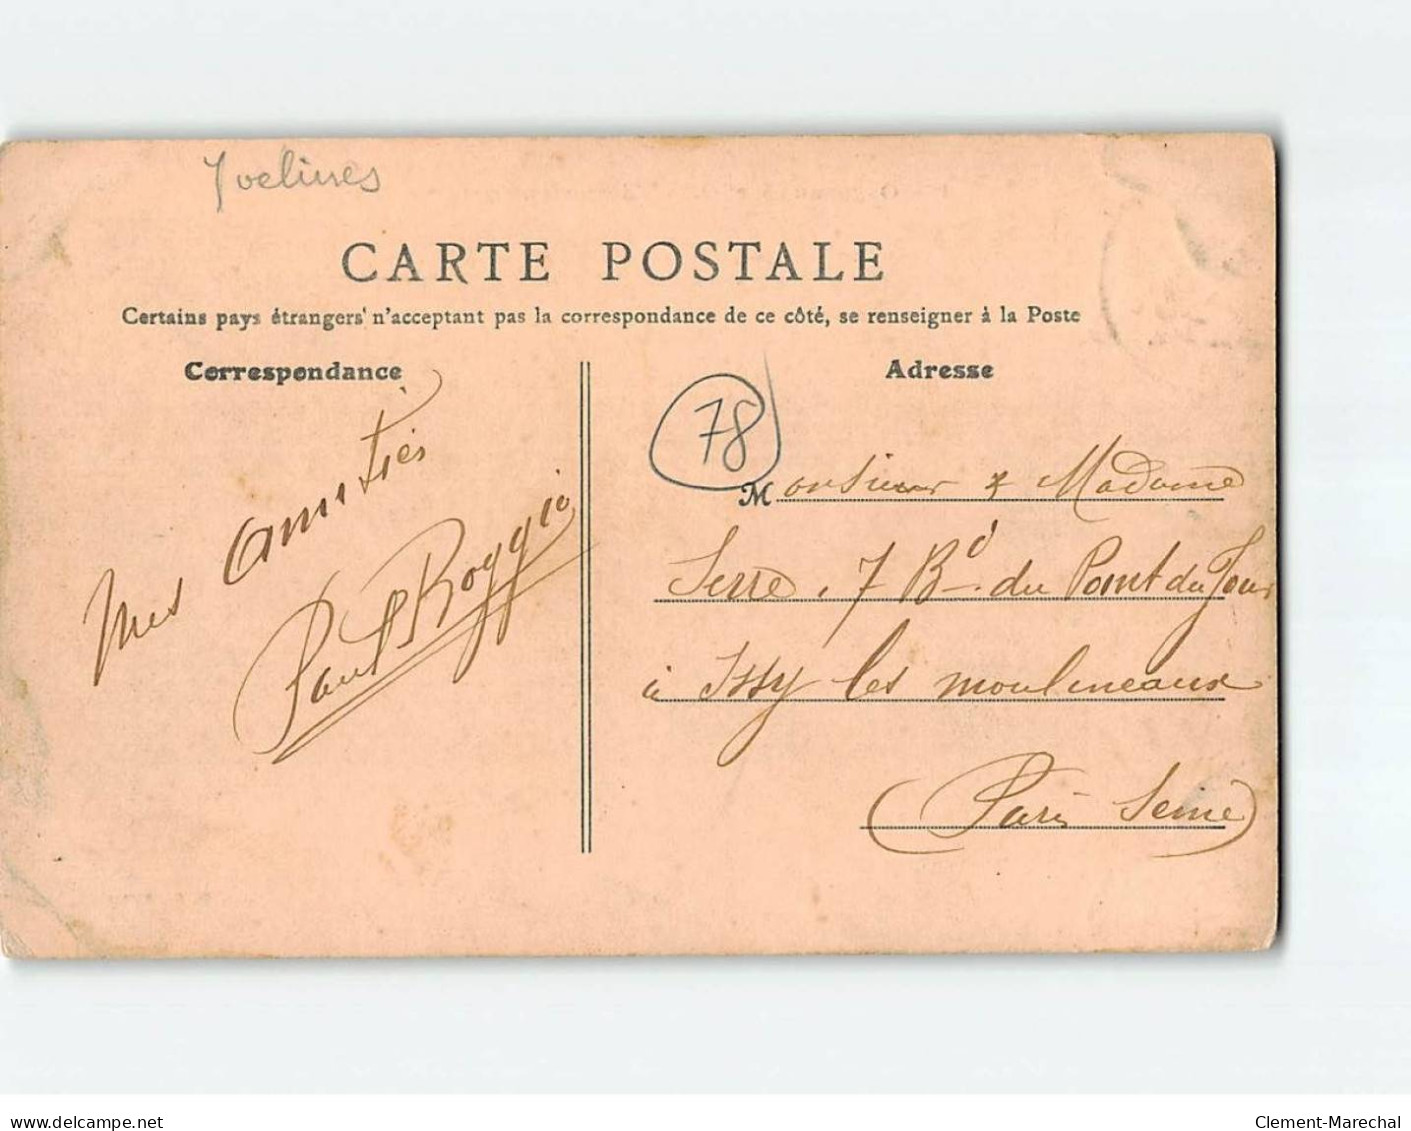 Yvelines
CARTE POSTALE
Certains pays étrangers n'acceptant pas la correspondance de ce côté, se renseigner à la Poste
Correspondance
Adresse
78
Mes Amitiés
Paul Roggio
Monsieur & Madame
Serre, 7 Bd du Point du Jour
à Issy les Moulineaux
(Paris Seine)
www.delcampe.net
Clement-Marechal